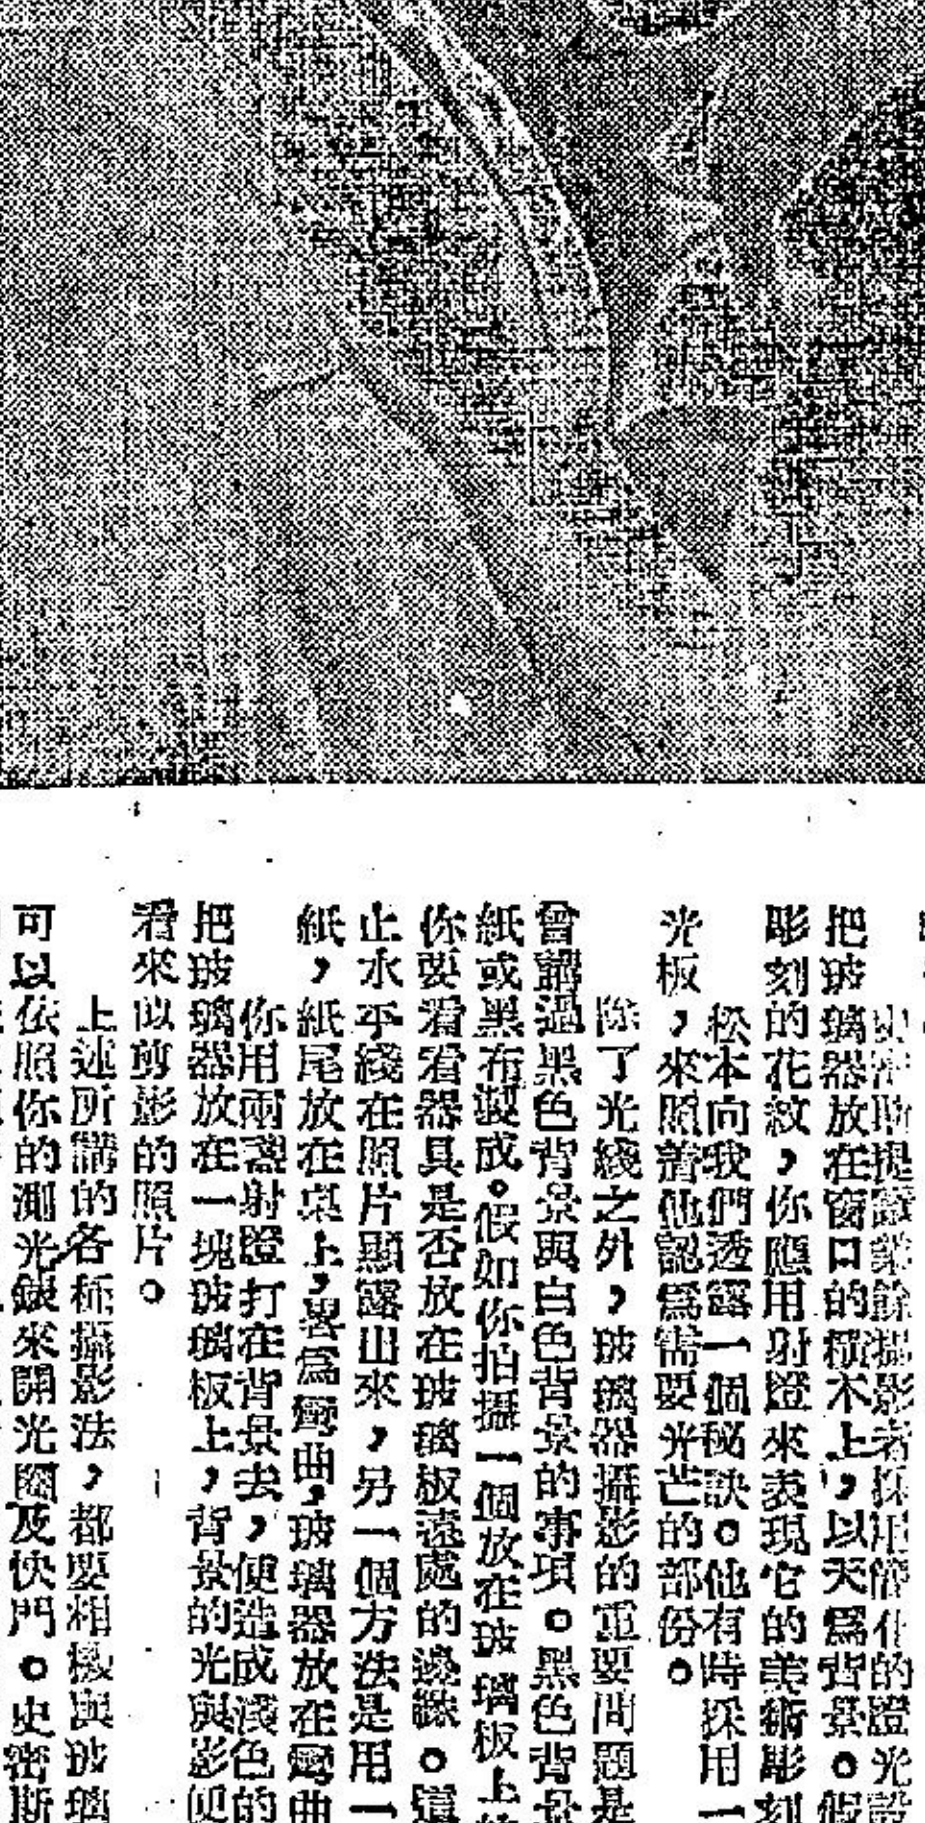 提醒業餘攝影者採用簡化的燈光設
把玻璃器放在窗口的橫木上，以天爲背景。假
彫刻的花紋，你應用射燈來表現它的美術彫刻
松本向我們透露一個秘訣。他有時採用一
光板，來照着他認爲需要光芒的部份。
除了光綫之外，玻璃器攝影的重要問題是
曾講過黑色背景與白色背景的事項。黑色背景
紙或黑布製成。假如你拍攝一個放在玻璃板上
你要看看器具是否放在玻璃板遠處的邊緣。這
止水平綫在照片顯露出來，另一個方法是用一
紙，紙尾放在桌上，畧爲彎曲，玻璃器放在彎曲
你用兩盞射燈打在背景去，便造成淺色的
把玻璃器放在一塊玻璃板上，背景的光與影便
看來似剪影的照片。
上述所講的各種攝影法，都要相機與玻璃
可以依照你的測光錶來開光圈及快門。史密斯